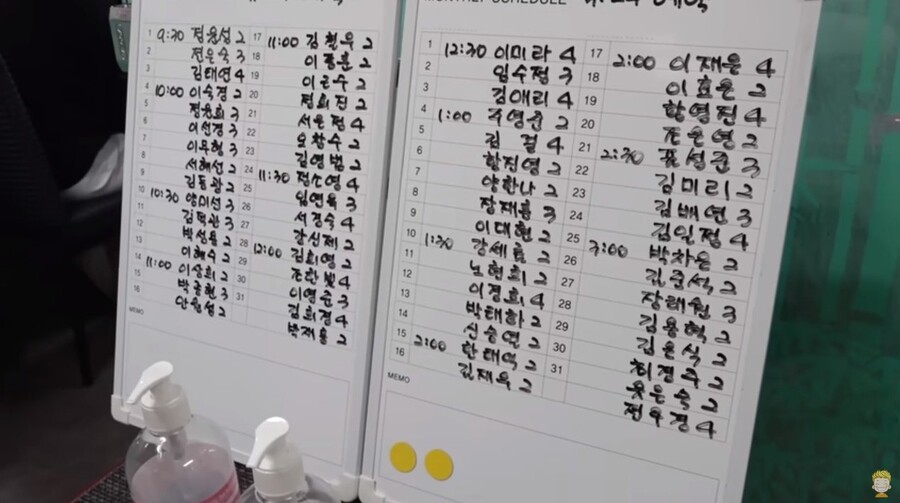 MONTHLY SCHEDULE
1 9:30 정용성 2
2 전은숙 3
3 김태연 4
4 10:00 이숙경 2
5 정용희 3
6 이선경 3
7 이무현 3
8 서해선 2
9 김동광 2
10 10:30 양미선 3
11 김덕관 3
12 박성용 2
13 이혜수 2
14 11:00 이승희 2
15 박종현 3
16 안원성 2
MEMO
17 11:00 김현우 2
18 이종훈 2
19 이근수 2
20 정희진 2
21 서은정 4
22 오창수 2
23 김영범 2
24 11:30 정소영 4
25 임연옥 3
26 서경숙 4
27 강신제 2
28 12:00 김희영 2
29 조한빛 4
30 이영준 3
31 김희경 4
박재홍 2
1 12:30 이미라 4
2 임수정 3
3 김애리 4
4 1:00 주영준 2
5 김걸 4
6 황진영 2
7 양한나 2
8 장재흠 3
9 이대현 2
10 1:30 강세효 2
11 노현희 2
12 이경희 4
13 박태하 2
14 신승연 2
15 2:00 한태덕 2
16 김재우 2
MEMO
17 2:00 이재은 4
18 이효은 2
19 함영진 4
20 조은영 2
21 2:30 표성준 3
22 김미리 2
23 김배연 3
24 김일정 4
25 3:00 박차은 2
26 김준석 2
27 장태원 3
28 김용혁 2
29 김윤식 2
30 최경주 2
31 옷은숙 2
전우경 4